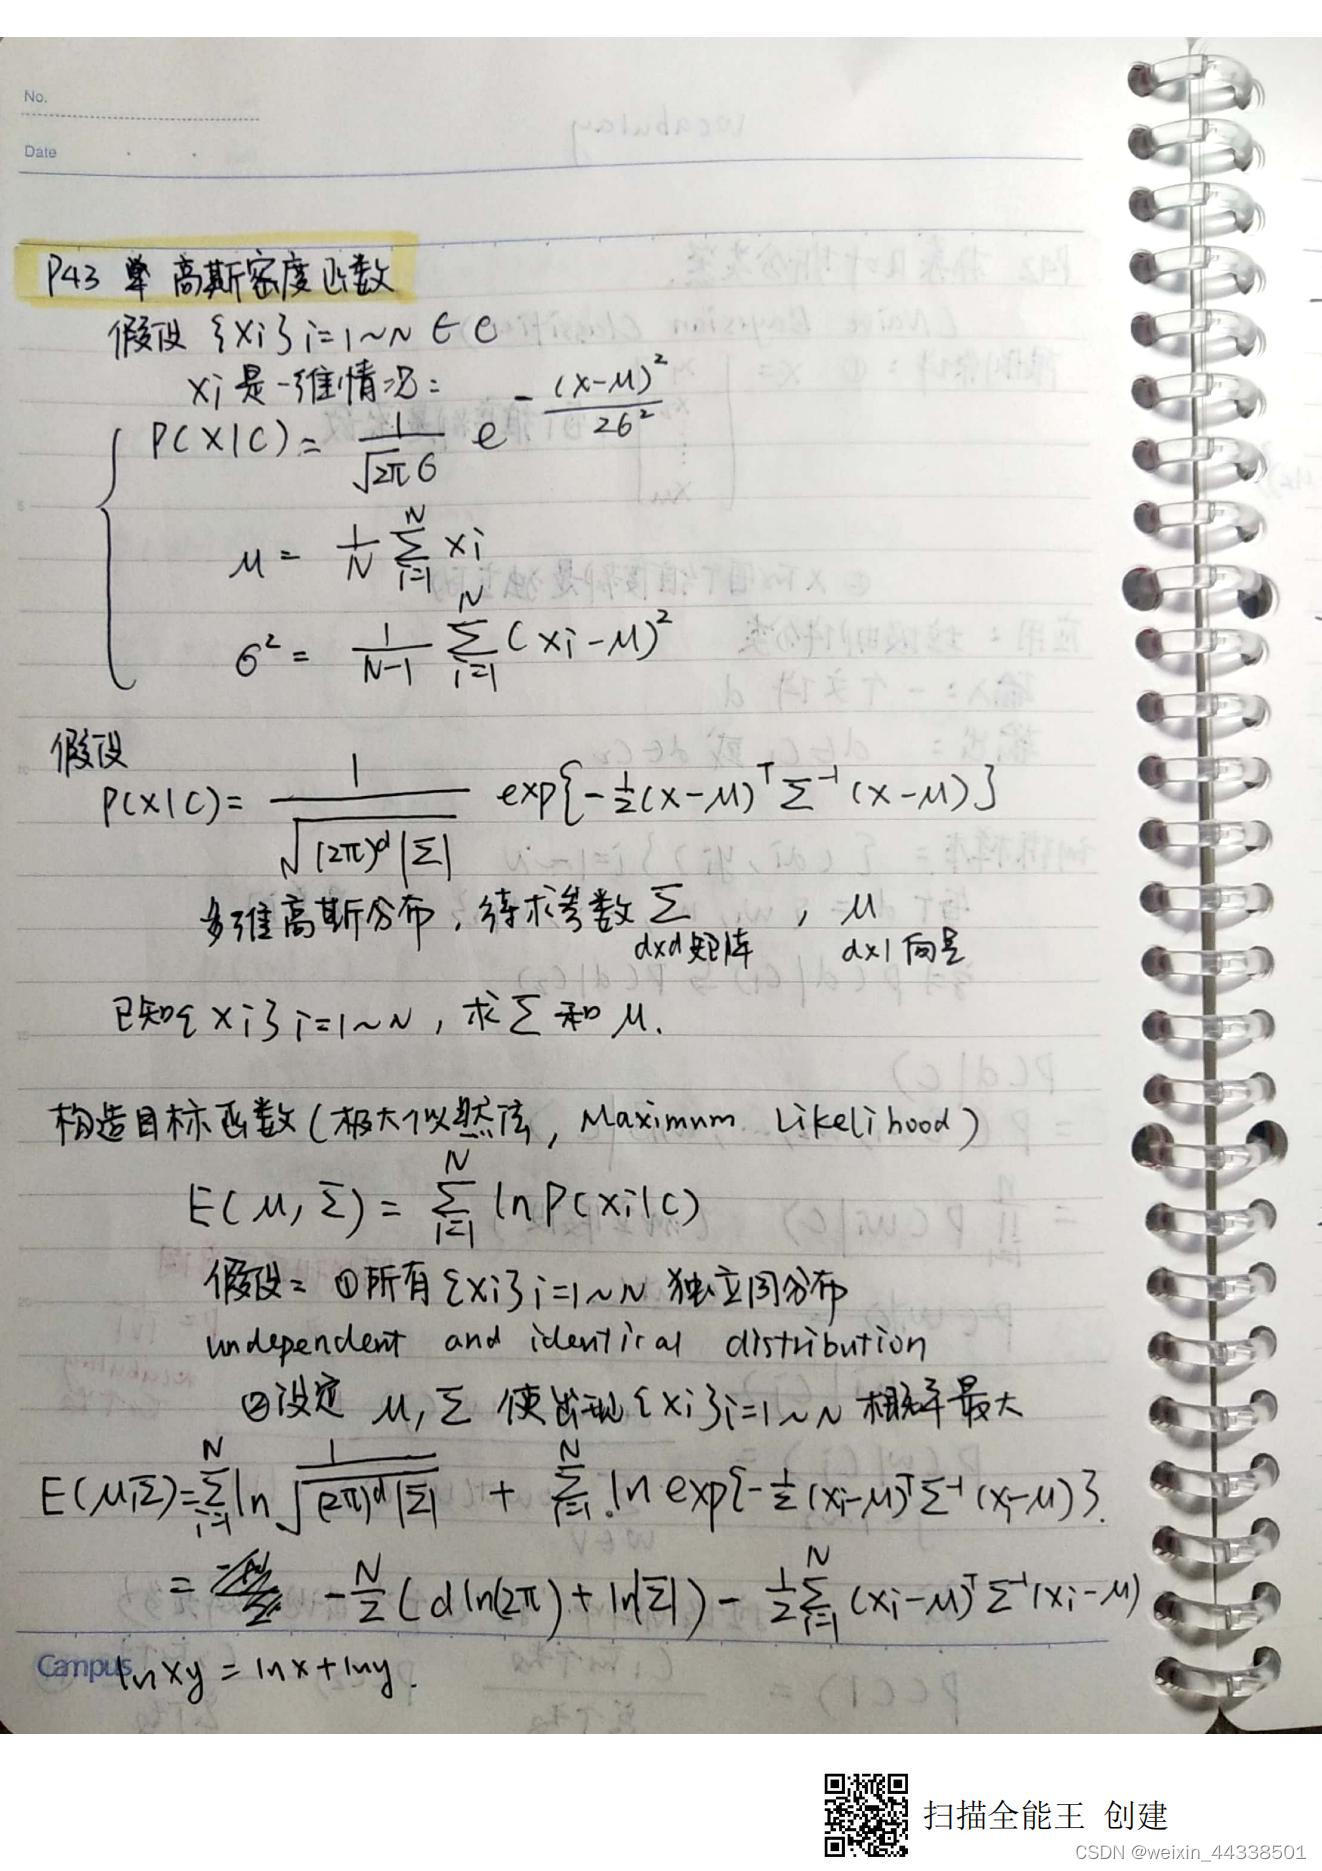 No.
Date
P43 单高斯密度函数
假设 {xi}i=1~N ∈ C
xi是一维情况:
P(X|C) = 1/(√2π σ) e^(-(x-μ)²/2σ²)
μ = 1/N ∑_{i=1}^{N} xi
σ² = 1/(N-1) ∑_{i=1}^{N} (xi-μ)²
假设
P(X|C) = 1/√((2π)^d |Σ|) exp{-1/2 (x-μ)^T Σ^-1 (x-μ)}
多维高斯分布, 待求参数 Σ , μ
d×d矩阵 d×1向量
已知{xi}i=1~N, 求Σ和μ.
构造目标函数(极大似然法, Maximum Likelihood)
E(μ, Σ) = ∑_{i=1}^{N} ln P(xi|C)
假设: ①所有{xi}i=1~N 独立同分布
undependent and identical distribution
②设定 μ, Σ 使出现{xi}i=1~N 概率最大
E(μ,Σ) = ∑_{i=1}^{N} ln 1/√((2π)^d |Σ|) + ∑_{i=1}^{N} ln exp{-1/2 (xi-μ)^T Σ^-1 (xi-μ)}.
= -N/2 (d ln(2π) + ln|Σ|) - 1/2 ∑_{i=1}^{N} (xi-μ)^T Σ^-1 (xi-μ)
Campus
ln xy = ln x + ln y.
扫描全能王 创建
CSDN @weixin_44338501